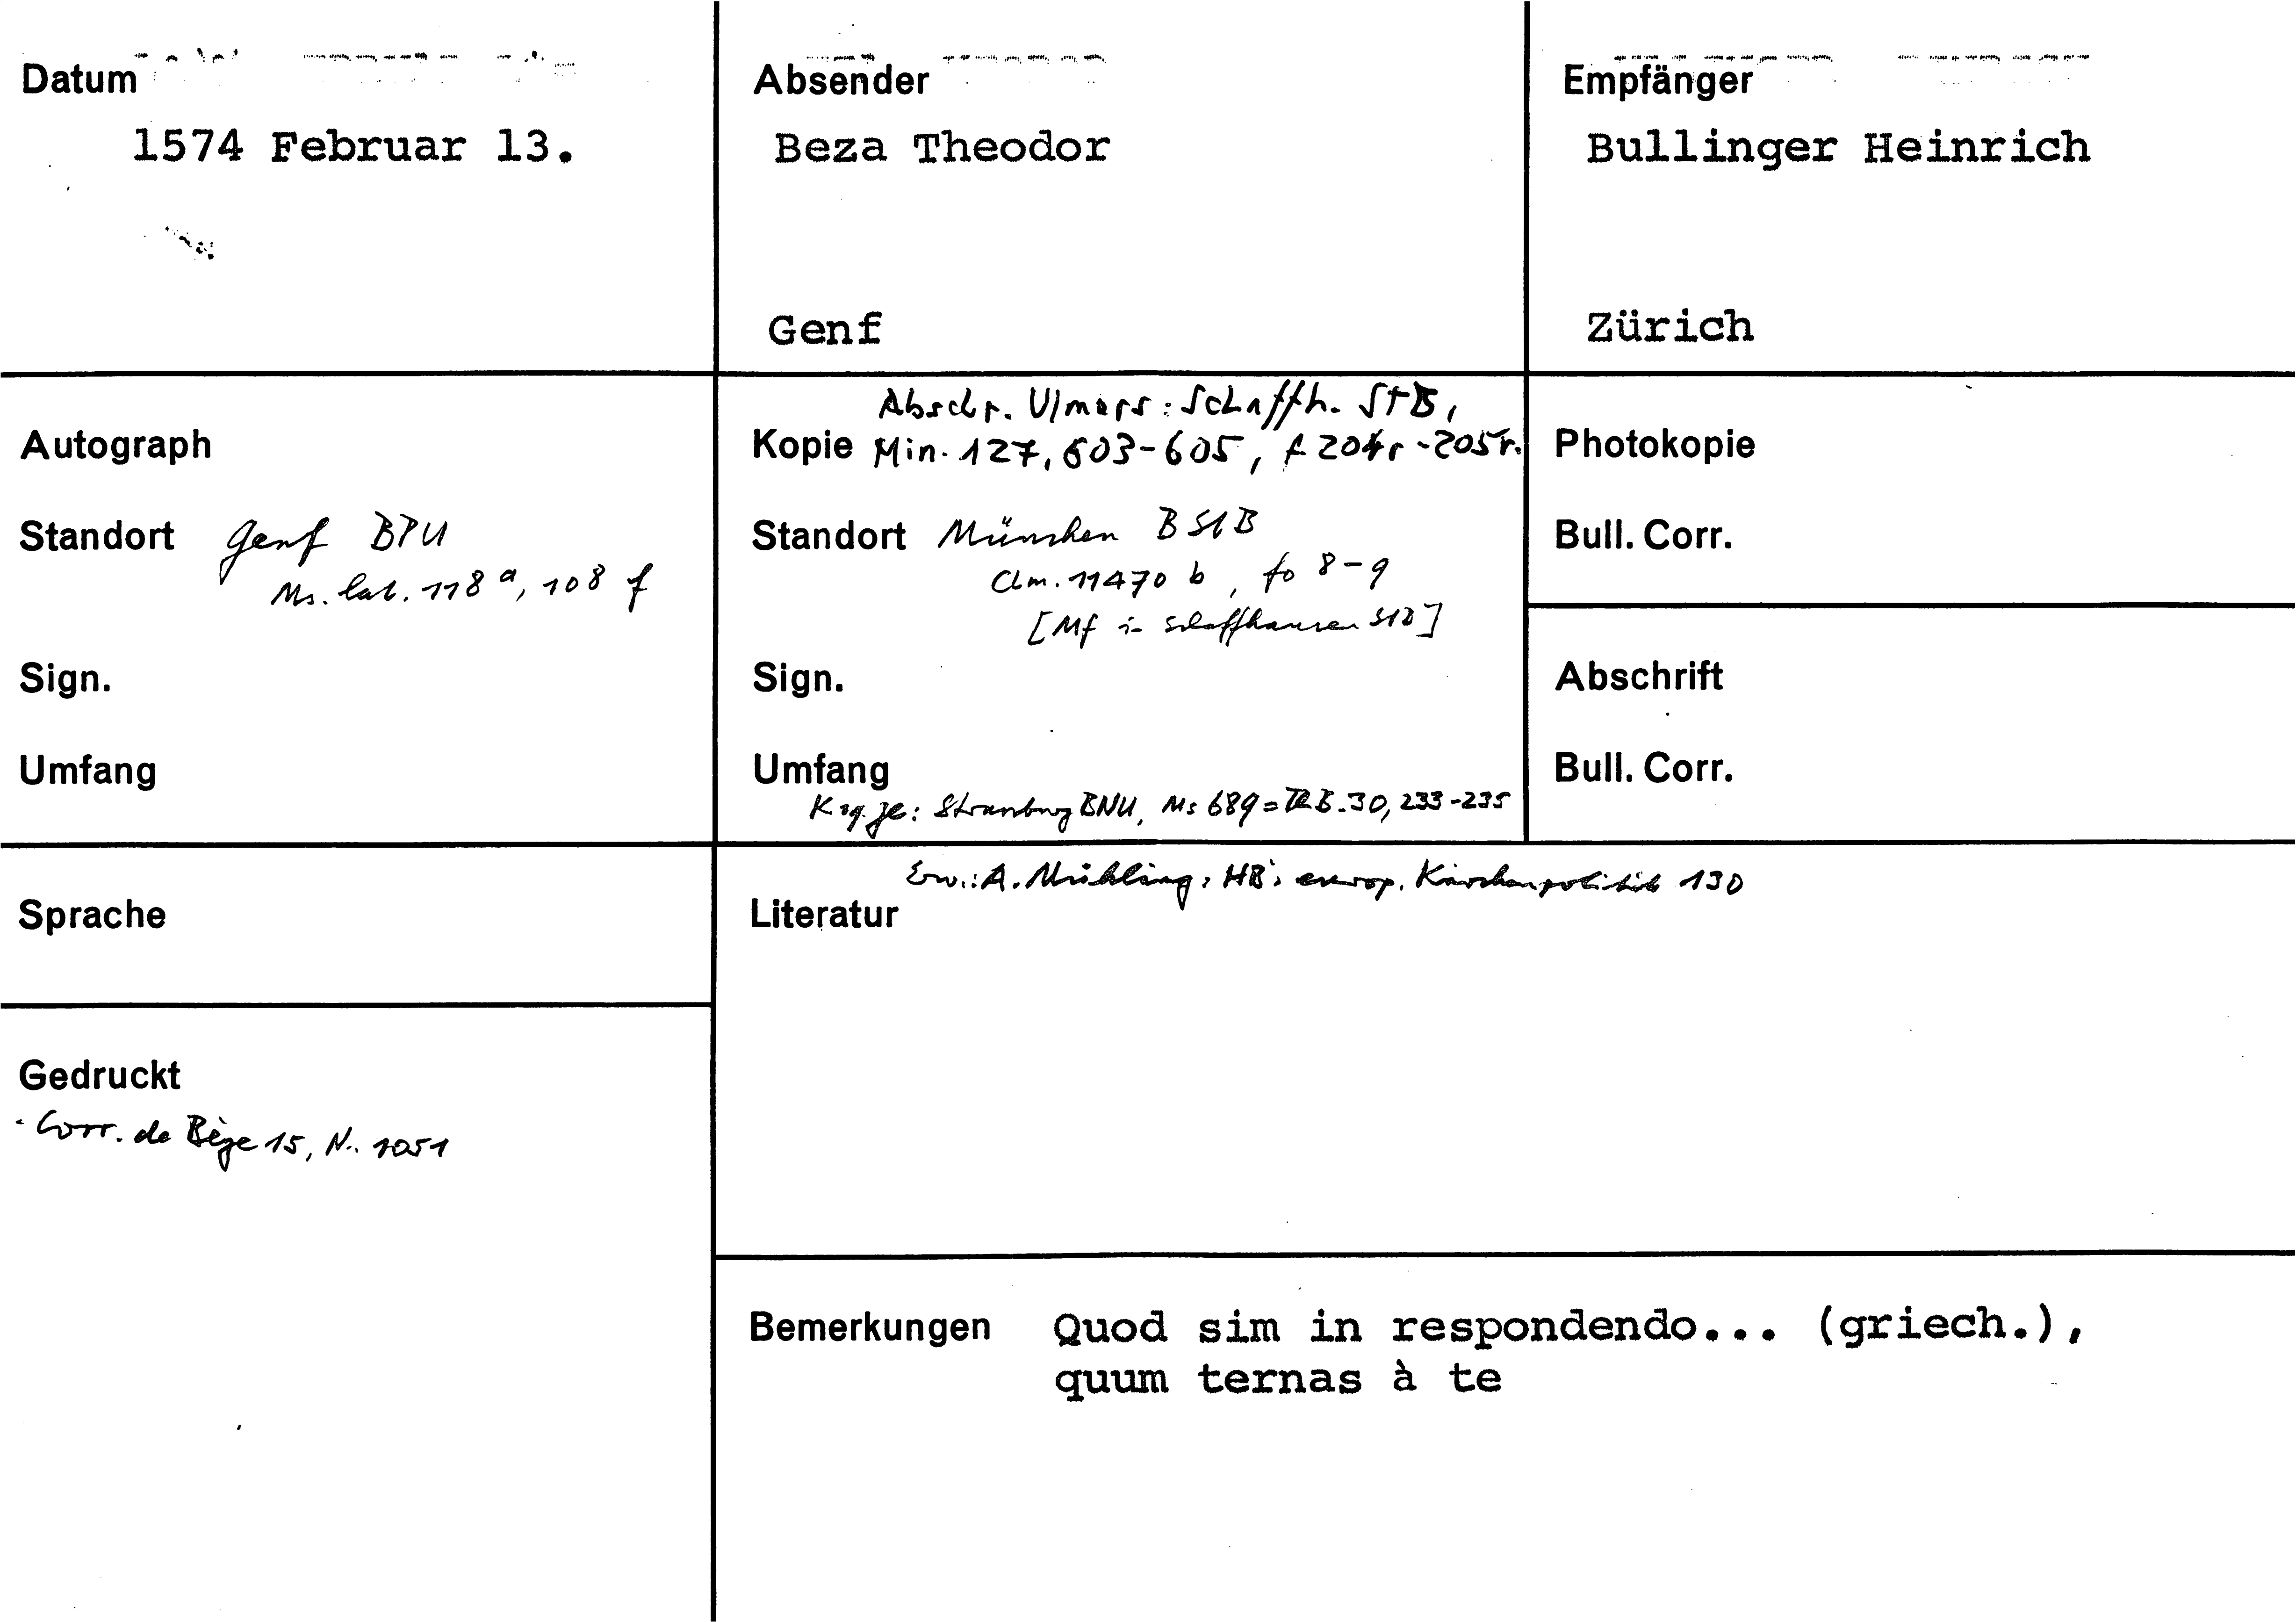 Datum
1574 Februar 13.
Absender
Beza Theodor
Genf
Empfänger
Bullinger Heinrich
Zürich
Autograph
Standort Genf BPU
Ms. lat. 118 a, 108 f
Sign.
Umfang
Abschr. Ulmers: Schaffh. StB,
Kopie Min. 127, 603-605, f 204r-205r.
Standort München BStB
Clm. 11470 b, fo 8-9
[Mf in Schaffhausen StB]
Sign.
Umfang
Strassburg BNU, Ms 689 = 30, 233-235
Photokopie
Bull. Corr.
Abschrift
Bull. Corr.
Sprache
Erw.: A. Mühling, HB's europ. Kirchenpolitik 130
Literatur
Gedruckt
- Corr. de Bèze 15, N. 1051
Bemerkungen Quod sim in respondendo... (griech.),
quum ternas à te